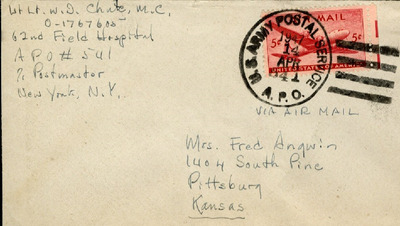 1st Lt. W.D. Chase, M.C.
O-1767605
62nd Field Hospital
A P O # 541
% Postmaster
New York, N.Y.
U.S. ARMY POSTAL SERVICE
A.P.O.
1947
14
APR
MAIL
5¢ 5¢
UNITED STATES OF AMERICA
VIA AIR MAIL
Mrs. Fred Angwin
1404 South Pine
Pittsburg
Kansas